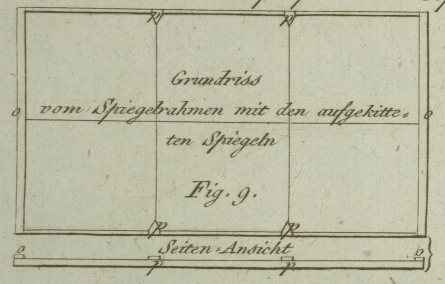 p p
Grundriss
o vom Spiegelrahmen mit den aufgekitte= o
ten Spiegeln
Fig. 9.
p p
o Seiten=Ansicht o
p p